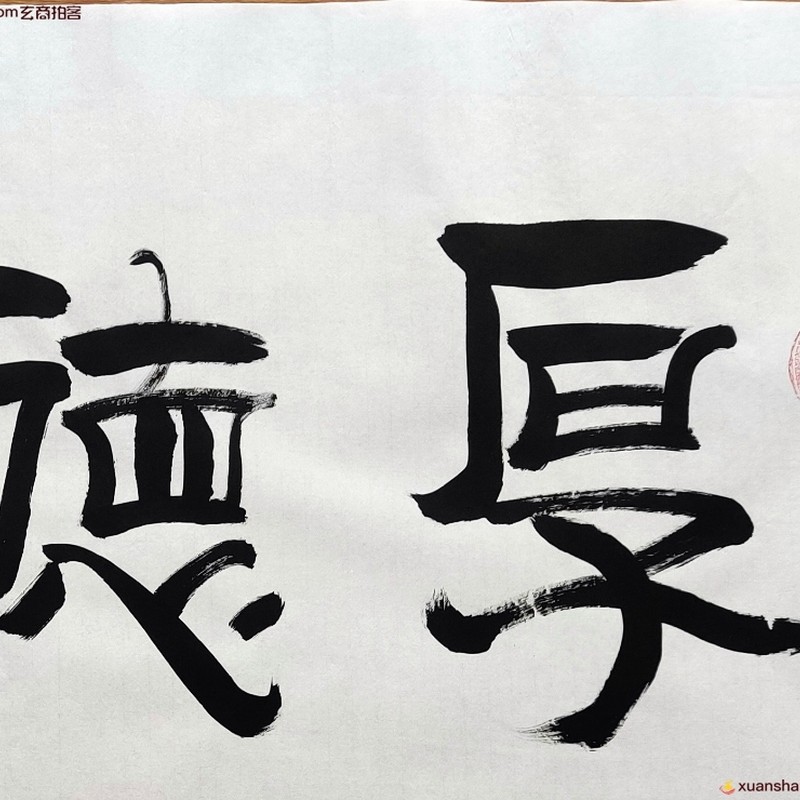 om玄商拍客
厚德
xuansha